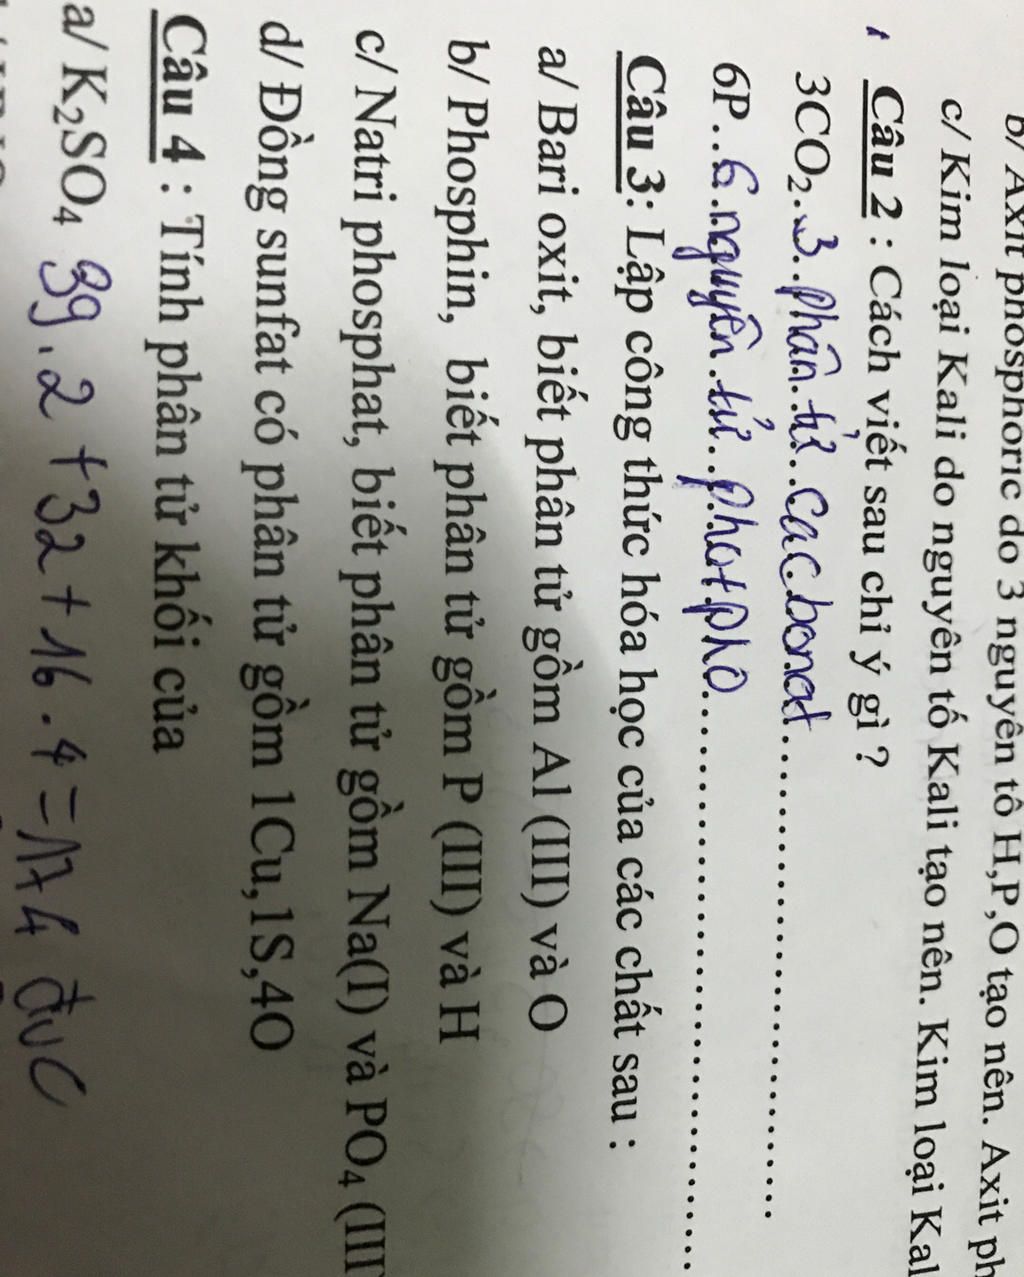 b/ Axit phosphoric do 3 nguyên tô H,P,O tạo nên. Axit ph
c/ Kim loại Kali do nguyên tố Kali tạo nên. Kim loại Kal
Câu 2 : Cách viết sau chỉ ý gì ?
3CO2...3..phân.tử..cac.bonat..............................
6P..6.nguyên.tử..phot.pho..............................
Câu 3: Lập công thức hóa học của các chất sau :
a/ Bari oxit, biết phân tử gồm Al (III) và O
b/ Phosphin, biết phân tử gồm P (III) và H
c/ Natri phosphat, biết phân tử gồm Na(I) và PO4 (III
d/ Đồng sunfat có phân tử gồm 1Cu,1S,4O
Câu 4 : Tính phân tử khối của
a/ K2SO4 39.2 +32+16.4=174 đvC